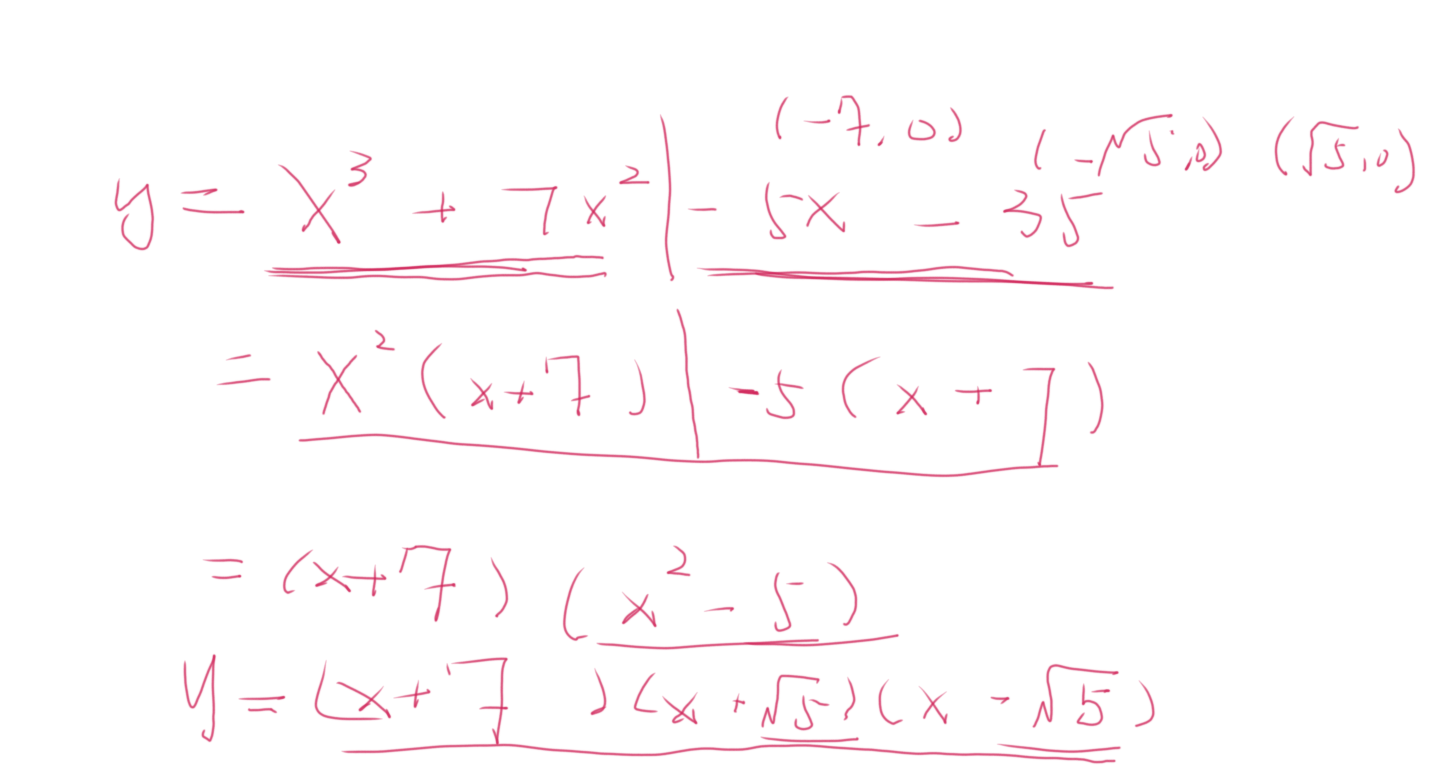 (-7, 0) (-√5, 0) (√5, 0)
y = x³ + 7x² | - 5x - 35
= x² (x+7) | -5 (x + 7)
= (x+7) (x² - 5)
y = (x+7) (x + √5) (x - √5)